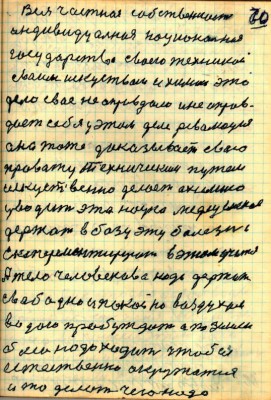 Вся частная собственность 70
индивидуалная национальная
государство своего техникой
своим искуством и химии это
дело свае не оправдало и не оправ
дает себя у этом деле революция
она тоже доказывает свою
правоту Техничиским путем
искуственно делает
уводит эта наука медецинская
держат в базу эту болезнь
експерементируют в этом
А тело человекова надо держат
свабодно спокойно воздухом
водою пробуждат а по земли
надо ходит чтобы
естественно окружатся
и то делат чего надо